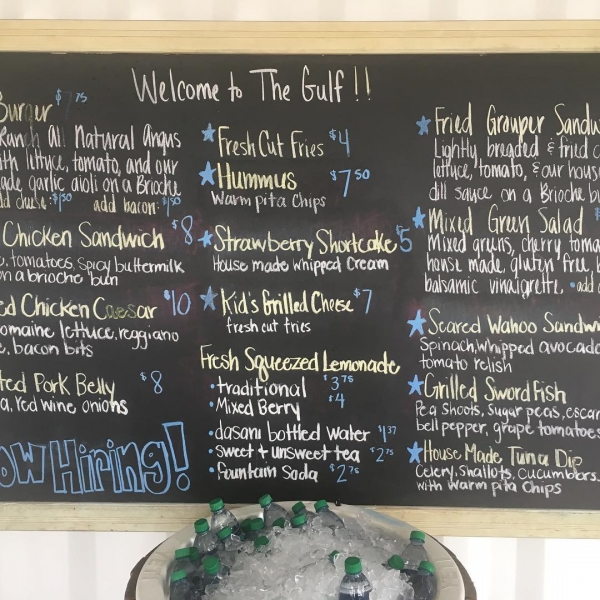 Welcome to The Gulf!!
Burger $7.75
Ranch All Natural Angus
lettuce, tomato, and our
garlic aioli on a Brioche
cheese: $1.50 add bacon: $1.50
Chicken Sandwich $8
tomatoes, spicy buttermilk
on a brioche bun
Chicken Caesar $10
romaine lettuce, reggiano
bacon bits
Pork Belly $8
red wine onions
Hiring!
★ Fresh Cut Fries $4
★ Hummus $7.50
Warm pita Chips
★ Strawberry Shortcake $5
House made whipped Cream
★ Kid's Grilled Cheese $7
fresh cut fries
Fresh Squeezed Lemonade
• traditional $3.75
• Mixed Berry $4
• dasani bottled water $1.37
• sweet + unsweet tea $2.75
• fountain Soda $2.75
★ Fried Grouper
Lightly breaded & fried
lettuce, tomato, & our
dill sauce on a Brioche
★ Mixed Green Salad
Mixed greens, cherry
house made, gluten free,
balsamic vinaigrette. • add
★ Seared Wahoo
Spinach, whipped
tomato relish
★ Grilled SwordFish
Pea shoots, sugar peas,
bell pepper, grape tomatoes
★ House Made Tuna Dip
Celery, shallots, cucumbers
with warm pita Chips